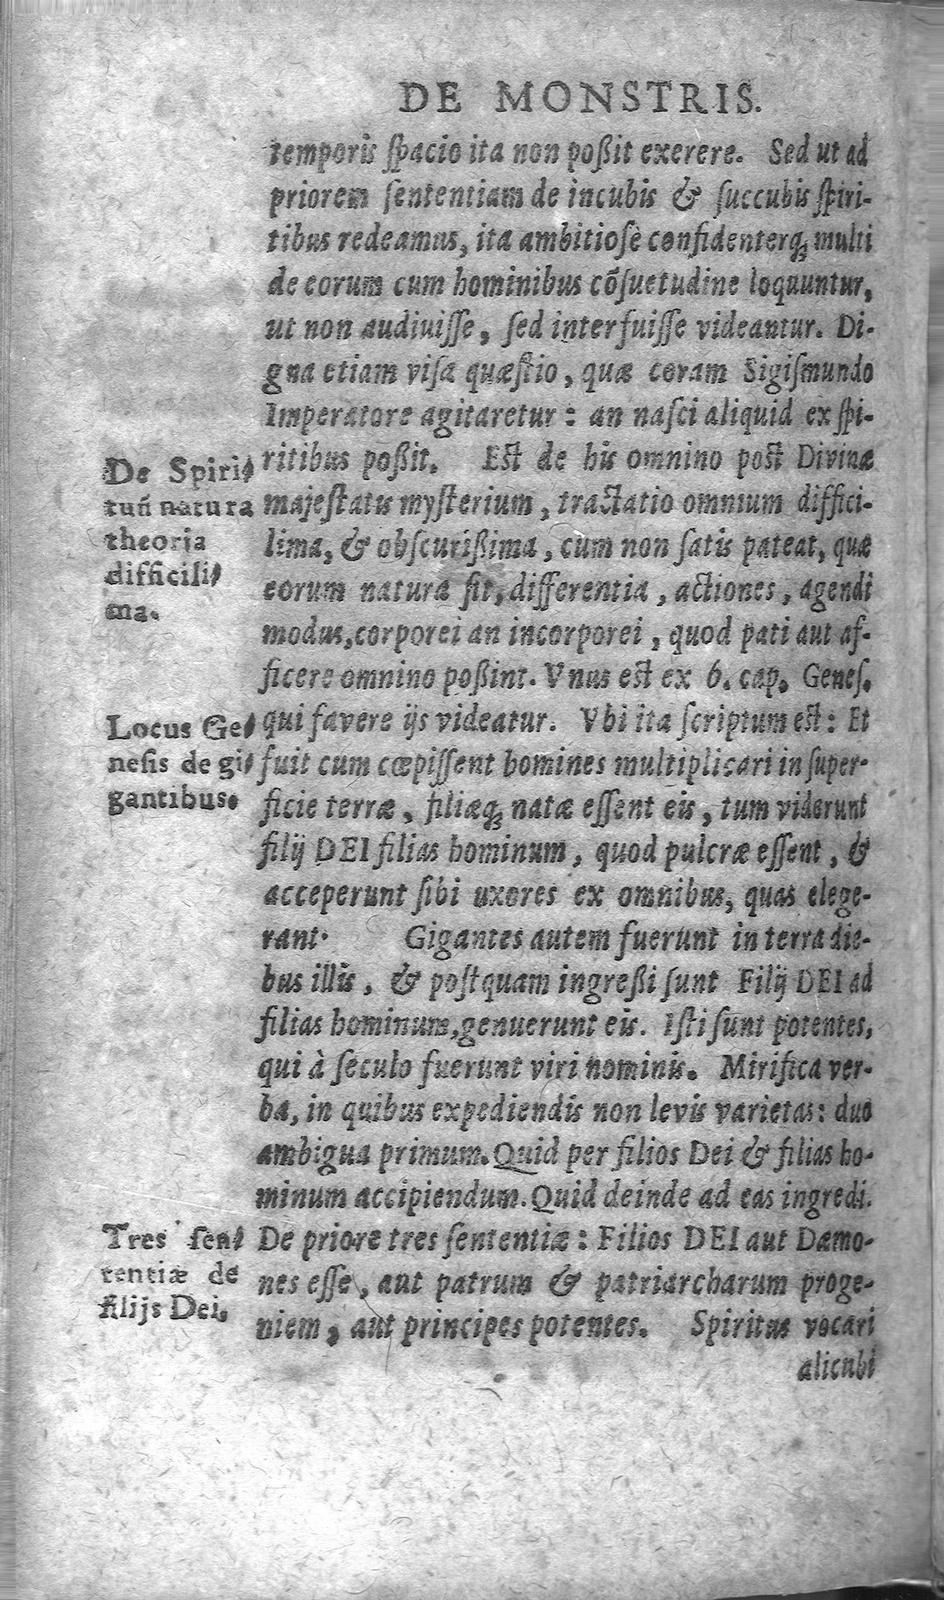 DE MONSTRIS.
temporis ſpacio ita non poßit exerere. Sed ut ad
priorem ſententiam de incubis & ſuccubis ſpiri-
tibus redeamus, ita ambitioſè confidenterq́; multi
de eorum cum hominibus cõſuetudine loquuntur,
ut non audiuiſſe, ſed interfuiſſe videantur. Di-
gna etiam viſa quæſtio, quæ coram Sigiſmundo
Imperatore agitaretur: an naſci aliquid ex ſpi-
ritibus poßit. Est de his omnino post Divinæ
majeſtatis myſterium, tractatio omnium diffici-
lima, & obſcurißima, cum non ſatis pateat, quæ
eorum natura ſit, differentia, actiones, agendi
modus, corporei an incorporei, quod pati aut af-
ficere omnino poßint. Vnus est ex 6. cap. Geneſ.
qui favere ijs videatur. Vbi ita ſcriptum est: Et
fuit cum cœpiſſent homines multiplicari in ſuper-
ficie terræ, filiæq́; natæ eſſent eis, tum viderunt
filij DEI filias hominum, quod pulcræ eſſent, &
acceperunt ſibi uxores ex omnibus, quas elege-
rant. Gigantes autem fuerunt in terra die-
bus illis, & poſtquam ingreßi ſunt Filij DEI ad
filias hominum, genuerunt eis. Iſti ſunt potentes,
qui à ſeculo fuerunt viri nominis. Mirifica ver-
ba, in quibus expediendis non levis varietas: duo
ambigua primum. Quid per filios Dei & filias ho-
minum accipiendum. Quid deinde ad eas ingredi.
De priore tres ſententiæ: Filios DEI aut Dæmo-
nes eſſe, aut patrum & patriarcharum proge-
niem, aut principes potentes. Spiritus vocari
alicubi
De Spiri-
tuũ natura
theoria
difficili-
ma.
Locus Ge-
neſis de gi-
gantibus.
Tres ſen-
tentiæ de
filijs Dei.